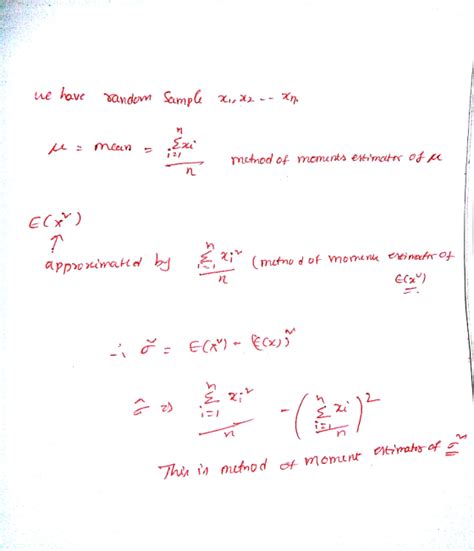 we have random Sample x₁, x₂ -- xₙ.
μ = mean = Σᵢ₌₁ⁿ xᵢ / n method of moments estimator of μ
E(x²)
↑
approximated by Σᵢ₌₁ⁿ xᵢ² / n (method of moments estimator of
E(x²)
∴ σ² = E(x²) - (E(x))²
σ̂ ⇒ Σᵢ₌₁ⁿ xᵢ² / n - ( Σᵢ₌₁ⁿ xᵢ / n )²
This is method of moment estimator of σ²